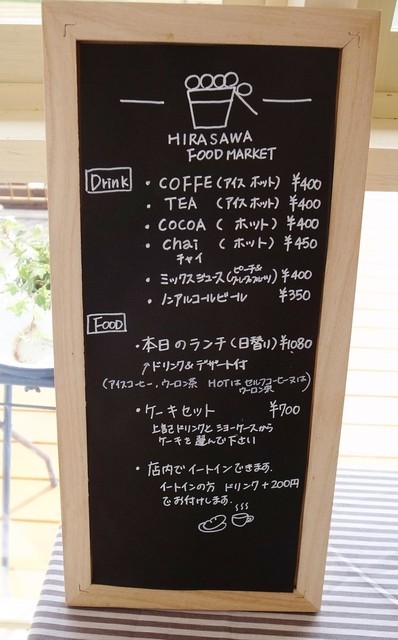 HIRASAWA
FOOD MARKET
Drink
・COFFE (アイス ホット) ¥400
・TEA (アイス ホット) ¥400
・COCOA ( ホット) ¥400
・chai ( ホット) ¥450
チャイ
・ミックスジュース (ピーチ& グレープフルーツ) ¥400
・ノンアルコールビール ¥350
FOOD
・本日のランチ (日替り) ¥1080
↑ドリンク&デザート付
(アイスコーヒー、ウーロン茶 HOTは セルフコーヒー又は ウーロン茶)
・ケーキセット ¥700
上記ドリンクと ショーケースから
ケーキを選んで下さい
・店内でイートインできます。
イートインの方 ドリンク+200円
でお付けします。